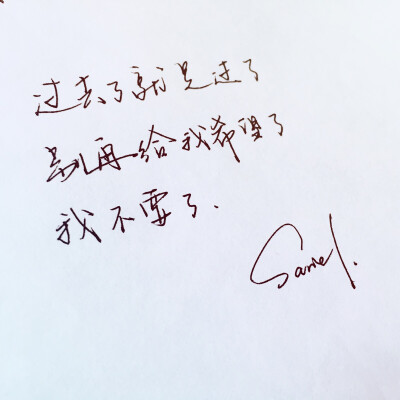 过去了就是过了
别再给我希望了
我不要了.